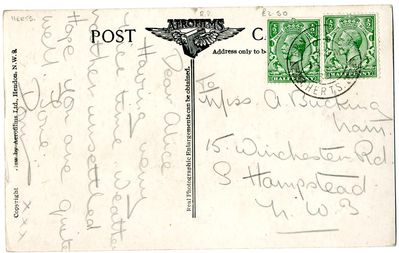 HERTS.
£2.50
POST
C
AEROFILMS
Address only to b
HERTS
Dear Alice
Having very
nice time weather
rather unsettled
Hope you are quite
well.
xxx
Copyright
by Aerofilms Ltd., Hendon, N.W.9.
Real Photographic Enlargements can be obtained.
To
Miss A Bucking
ham.
15, Winchester Rd.
S Hampstead
N.W.3